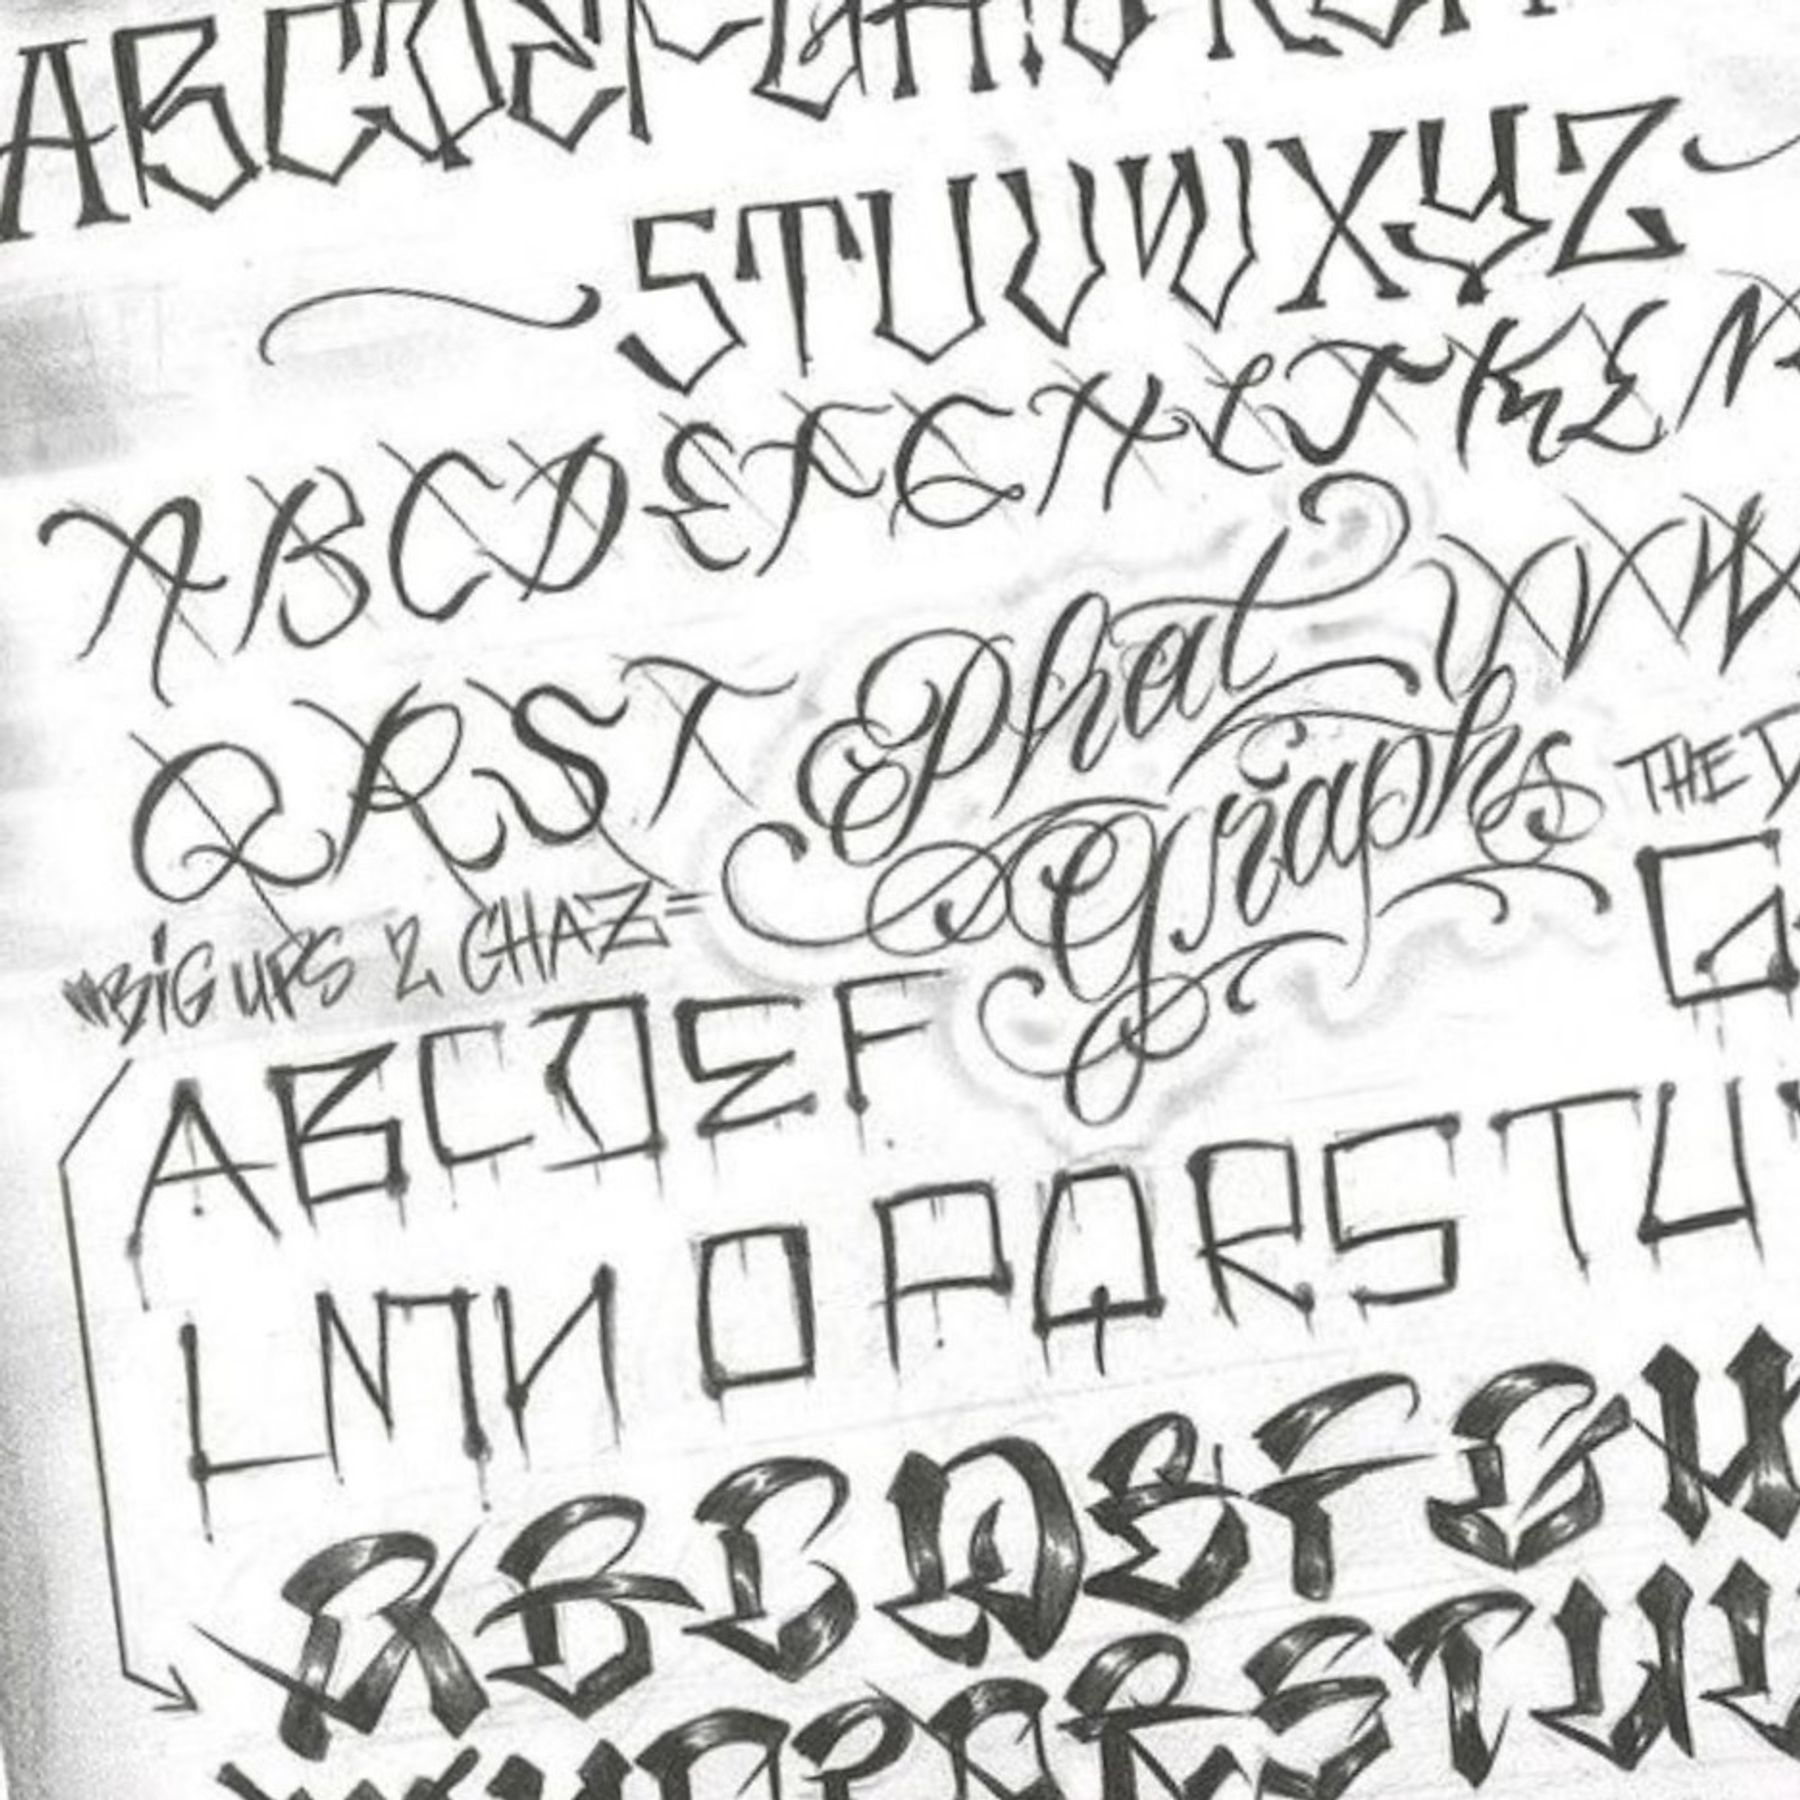 ABCDEFGHIJKLM
STUVWXYZ
ABCDEFGHIJKLM
QRST
Phat
Graphs
VW
THE
"BIG UPS 2 CHAZ=
G
ABCDEF
LMNOPQRSTU
ABCDEFGH
MNOPQRSTU